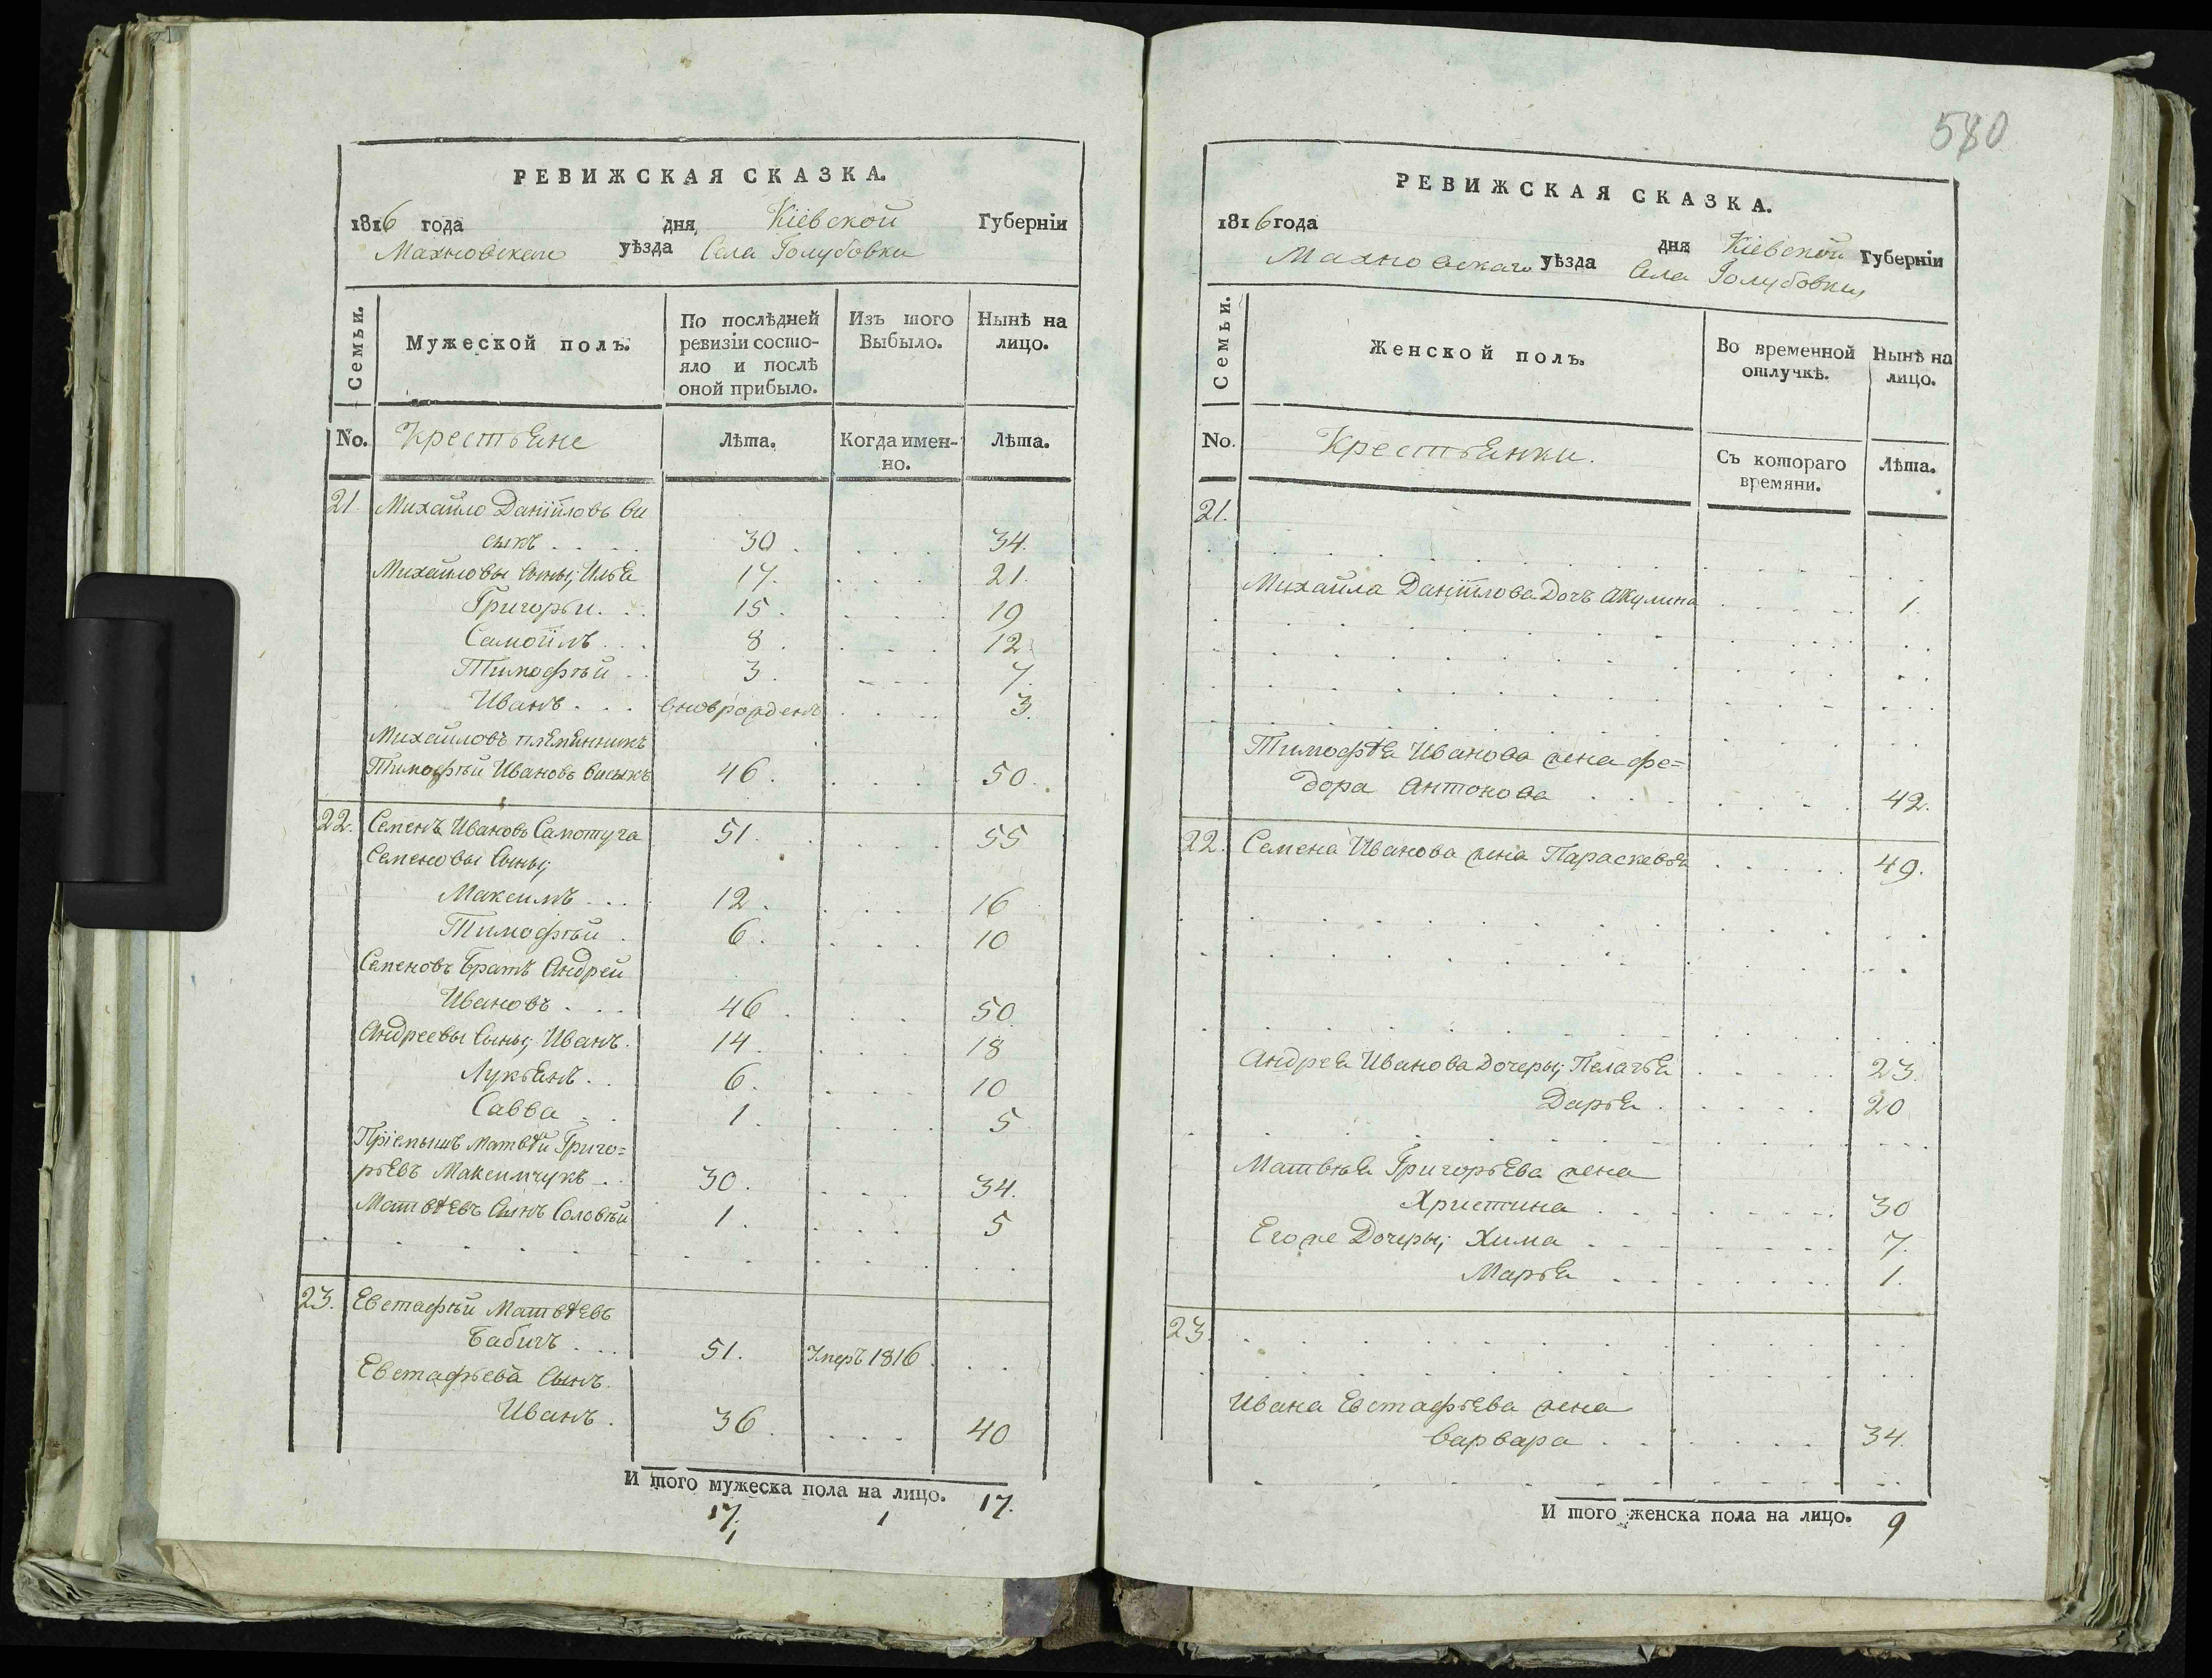 РЕВИЖСКАЯ СКАЗКА.
1816 года дня Кіевской Губерніи
Махновскаго уѣзда Села Голубовки
Семьи. Мужеской полъ. По послѣдней ревизіи состояло и послѣ оной прибыло. Изъ того Выбыло. Нынѣ на лицо.
No. Крестьяне Лѣта. Когда именно. Лѣта.
21. Михайло Даніиловъ Ви
сыкъ . . . . 30 . . . . 34.
Михайловы Сыны; Илья 17. . . . 21.
Григорьи . . 15 . . . . 19
Самоіилъ . . . 8 . . . . 12
Тимофѣй . . 3 . . . . 7.
Иванъ . . . вновьрожденъ . . . 3.
Михайловъ племянникъ
Тимофѣй Ивановъ Висыкъ 46 . . . . 50 .
22. Семенъ Ивановъ Самотуга 51. . . . . 55
Семеновы Сыны;
Максимъ . . . 12 . . . . 16
Тимофѣй . 6 . . . . 10
Семеновъ Братъ Андрей
Ивановъ . . . 46 . . . . 50
Андреевы Сыны; Иванъ . 14 . . . . 18
Лукьянъ . . 6 . . . . 10
Савва . . 1 . . . . 5
Пріемышъ Матвѣй Григо=
рьевъ Максимчукъ . . 30 . . . . 34.
Матвѣевъ Сынъ Соловѣй 1 . . . . 5
23. Евстафѣй Матвѣевъ
Бабичъ . . . 51. Умеръ 1816 . . .
Евстафьева Сынъ
Иванъ . 36 . . . . 40
И того мужеска пола на лицо. 17.
17. 1
1
580
РЕВИЖСКАЯ СКАЗКА.
1816 года дня Кіевской Губерніи
Махновскаго уѣзда Села Голубовки
Семьи. Женской полъ. Во временной отлучкѣ. Нынѣ на лицо.
No. Крестьянки. Съ котораго времяни. Лѣта.
21.
Михайла Даніилова Дочъ Акулина . . . . 1.
Тимофѣя Иванова жена Фе=
дора Антонова . . . . . . 42.
22. Семена Иванова жена Параскевья . . . . 49.
Андрея Иванова Дочеры; Пелагья . . . . 23.
Дарья . . . . 20
Матвѣя Григорьева жена
Христина . . . . . . 30
Его же Дочеры; Хима . . . . . . 7.
Марья . . . . . . 1.
23.
Ивана Евстафьева жена
Варвара . . . . . . 34.
И того женска пола на лицо. 9